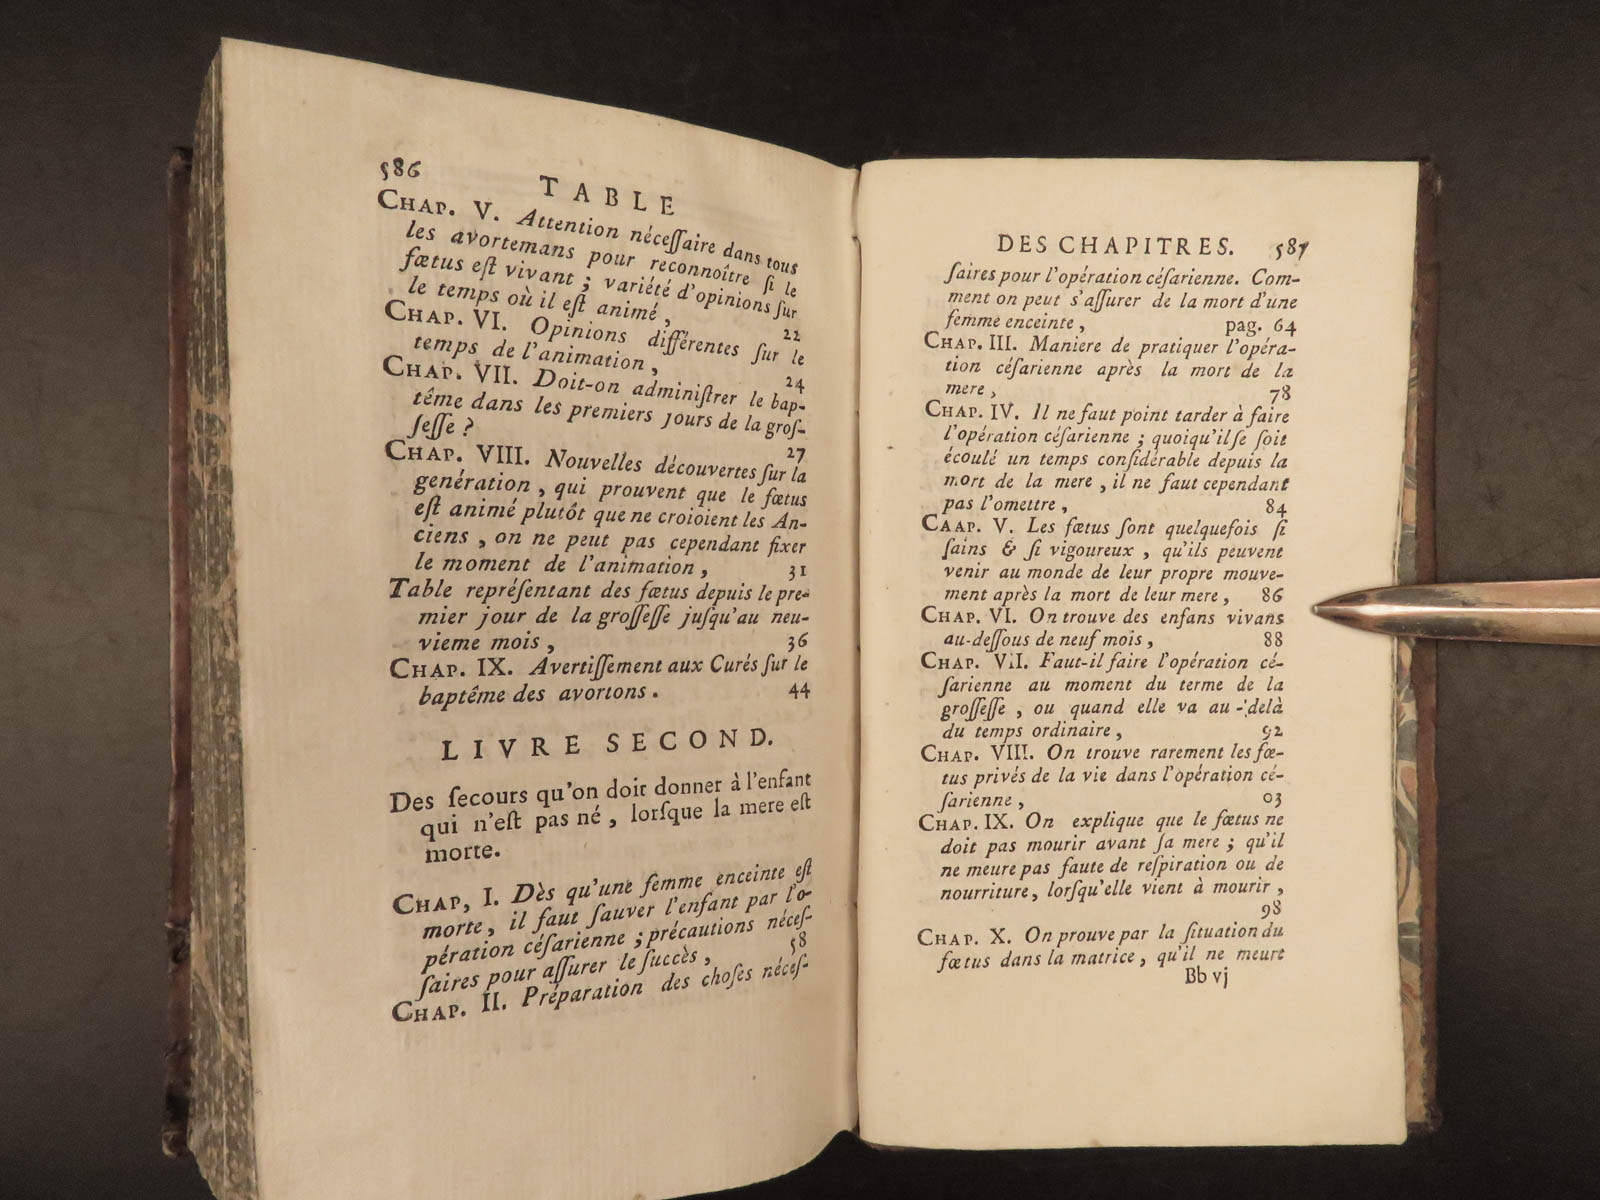 586
TABLE
CHAP. V. Attention néceſſaire dans tous
les avortemans pour reconnoître ſi le
fœtus eſt vivant ; variété d'opinions ſur
le temps où il eſt animé, 22
CHAP. VI. Opinions différentes ſur le
temps de l'animation, 24
CHAP. VII. Doit-on adminiſtrer le bap-
tême dans les premiers jours de la groſ-
ſeſſe ? 27
CHAP. VIII. Nouvelles découvertes ſur la
genération, qui prouvent que le fœtus
eſt animé plutôt que ne croioient les An-
ciens, on ne peut pas cependant fixer
le moment de l'animation, 31
Table repréſentant des fœtus depuis le pre-
mier jour de la groſſeſſe juſqu'au neu-
vieme mois, 36
CHAP. IX. Avertiſſement aux Curés ſur le
baptême des avortons. 44
LIVRE SECOND.
Des ſecours qu'on doit donner à l'enfant
qui n'eſt pas né, lorſque la mere eſt
morte.
CHAP, I. Dès qu'une femme enceinte eſt
morte, il faut ſauver l'enfant par l'o-
pération céſarienne ; précautions néceſ-
ſaires pour aſſurer le ſuccès, 58
CHAP. II. Préparation des choſes néceſ-
DES CHAPITRES. 587
ſaires pour l'opération céſarienne. Com-
ment on peut s'aſſurer de la mort d'une
femme enceinte, pag. 64
CHAP. III. Maniere de pratiquer l'opéra-
tion céſarienne après la mort de la
mere, 78
CHAP. IV. Il ne faut point tarder à faire
l'opération céſarienne ; quoiqu'il ſe ſoit
écoulé un temps conſidérable depuis la
mort de la mere, il ne faut cependant
pas l'omettre, 84
CAAP. V. Les fœtus ſont quelquefois ſi
ſains & ſi vigoureux, qu'ils peuvent
venir au monde de leur propre mouve-
ment après la mort de leur mere, 86
CHAP. VI. On trouve des enfans vivans
au-deſſous de neuf mois, 88
CHAP. VII. Faut-il faire l'opération cé-
ſarienne au moment du terme de la
groſſeſſe, ou quand elle va au-delà
du temps ordinaire, 92
CHAP. VIII. On trouve rarement les fœ-
tus privés de la vie dans l'opération cé-
ſarienne, 03
CHAP. IX. On explique que le fœtus ne
doit pas mourir avant ſa mere ; qu'il
ne meure pas faute de reſpiration ou de
nourriture, lorſqu'elle vient à mourir,
98
CHAP. X. On prouve par la ſituation du
fœtus dans la matrice, qu'il ne meure
Bb vj